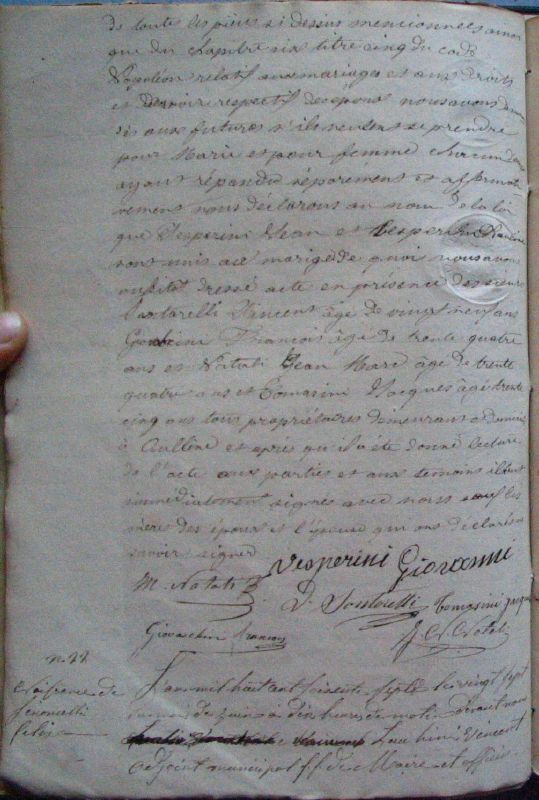 de toutes les pièces ci dessus mentionnées ainsi
que du chapitre six titre cinq du code
Napoléon relatif aux mariages et aux droits
et devoir respectif des époux nous avons
aux futures s'ils veulent se prendre
pour Marie et pour femme chacun d'eux
ayant répandu séparement et affirmati
vement nous declarons au nom de la loi
que Vesperini Jean et Vesperini
sont unis acé mariage de quoi nous avons
aussitot dressé acte en présence des sieurs
Vincent âgé de vingt neuf ans
François âgé de trente quatre
ans et Natali Jean Marc âgé de trente
quatre ans et Tomasini Jacques âgé trente
cinq ans tous propriétaires demeurans
à Aullène et après qu'il a été donné lecture
de l'acte aux parties et aux temoins ils ont
immédiatement signés avec nous sauf les
mère des époux et l'épouse qui ont declaré ne
savoir signer
Vesperini Giovanni
M. Natali
Tomasini
Giovacchini François
J. Natali
n. 22
Naissance de
L'an mil huit cent soixante sept le vingt sept
du mois de juin à dix heures du matin devant nous
Vincent
adjoint municipal ff de Maire et officier